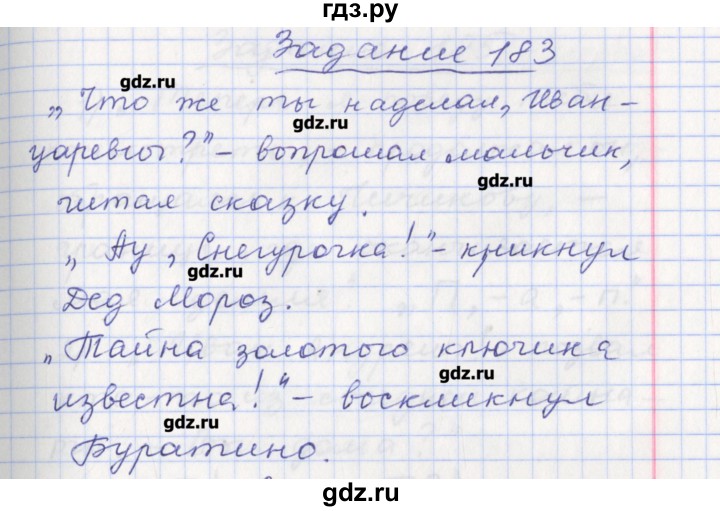 гдз.ру
Задание 183
gdz.ru
„Что же ты наделал, Иван-
gdz.ru
царевич?" – вопрошал мальчик,
gdz.ru
читая сказку.
„Ау, Снегурочка!" – крикнул
gdz.ru
Дед Мороз.
„Тайна золотого ключика
gdz.ru
известна!" – воскликнул
gdz.ru
Буратино.
gdz.ru